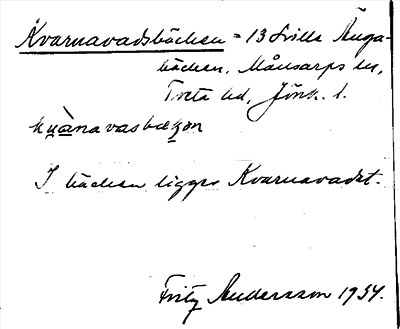 Kvarnavadsbäcken = 13 Lilla Änga-
bäcken, Månsarps sn,
Tveta hd, Jönk. l.
kuànavasbækɔn
I bäcken ligger Kvarnavadet.
Fritz Andersson 1934.